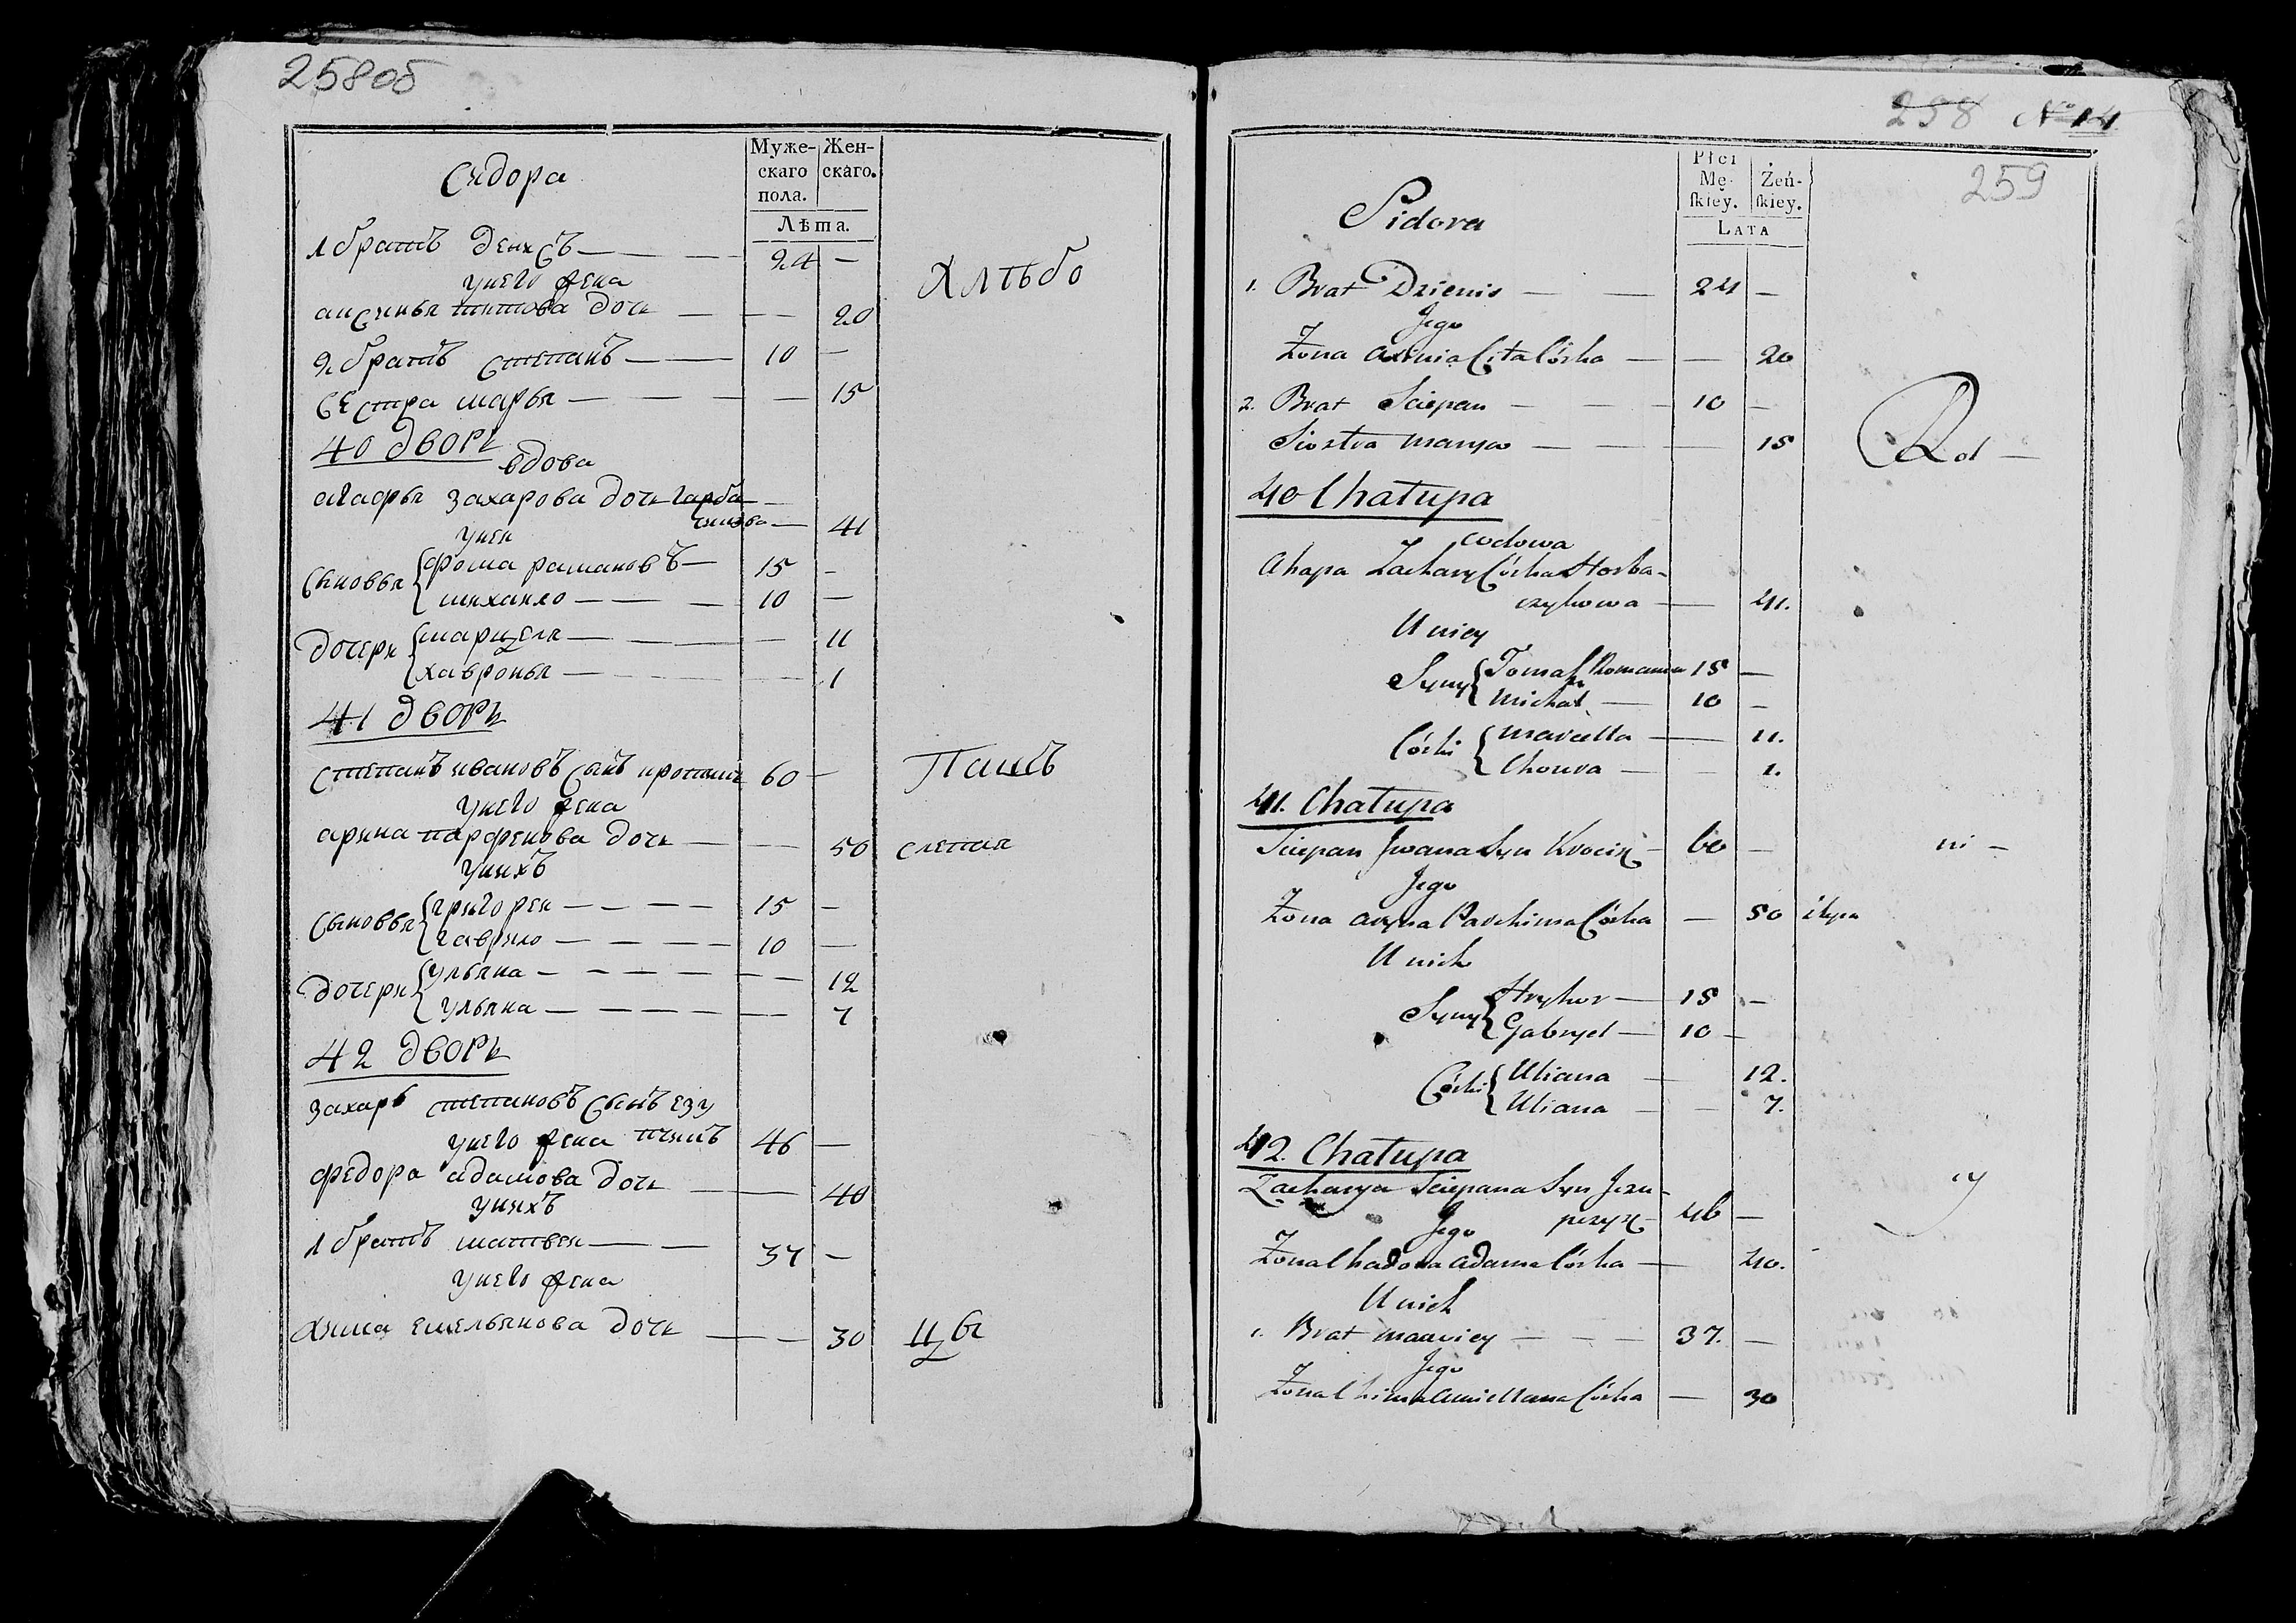 258об
Сидора
Муже- Жен-
скаго скаго.
пола.
Лѣта.
1 братъ Денисъ — 24 —
Хлѣбо
унего жена
аксинья титова дочь — 20
2 братъ степанъ — 10 —
сестра марья — 15
40 дворъ
вдова
агафья захарова дочь гарба
чикова — 41
унеи
сыновья фома рамановъ — 15 —
михаило — 10 —
дочери марцеля — 11
хавронья — 1
41 дворъ
степанъ ивановъ сынъ 60 —
Пашъ
унего жена
арина парфенова дочь — 50 слепая
унихъ
сыновья григореи — 15 —
гаврило — 10 —
дочери ульяна — 12
ульяна — 7
42 дворъ
захаръ степановъ сынъ езу
унего жена пчикъ 46 —
федора адамова дочь — 40
унихъ
1 братъ матвеи — 37 —
унего жена
химка емельянова дочь — 30
цы
258 No 14
259
Płci
Mę- Żeń-
skiey. skiey.
LATA
Sidora
1. Brat Dzienis — 24 —
Jego
Żona Axinia Cita Córka — 20
2. Brat Sciepan — 10 —
Siostra Marya — 15
Rol —
40 Chałupa
wdowa
Ahapa Zachary Córka Horba-
czykowa — 41.
U niey
Syny Tomasz Romanow 15 —
Michał — 10 —
Córki Marcella — 11.
Chowra — 1.
41. Chałupa
Sciepan Jwana Syn — 60 —
ni —
Jego
Żona Aryna Parchima Córka — 50 slepa
U nich
Syny Hryhor — 15 —
Gabryel — 10 —
Córki Uliana — 12.
Uliana — 7.
42. Chałupa
Zacharya Sciepana Syn Jezu-
pczyk — 46 —
cy
Jego
Żona Chadora Adama Córka — 40.
U nich
1. Brat Maćwiey — 37. —
Jego
Żona Chima Amielliana Córka — 30